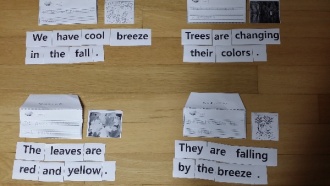 We have cool breeze
in the fall .
Trees are changing
their colors .
The leaves are
red and yellow .
They are falling
by the breeze .